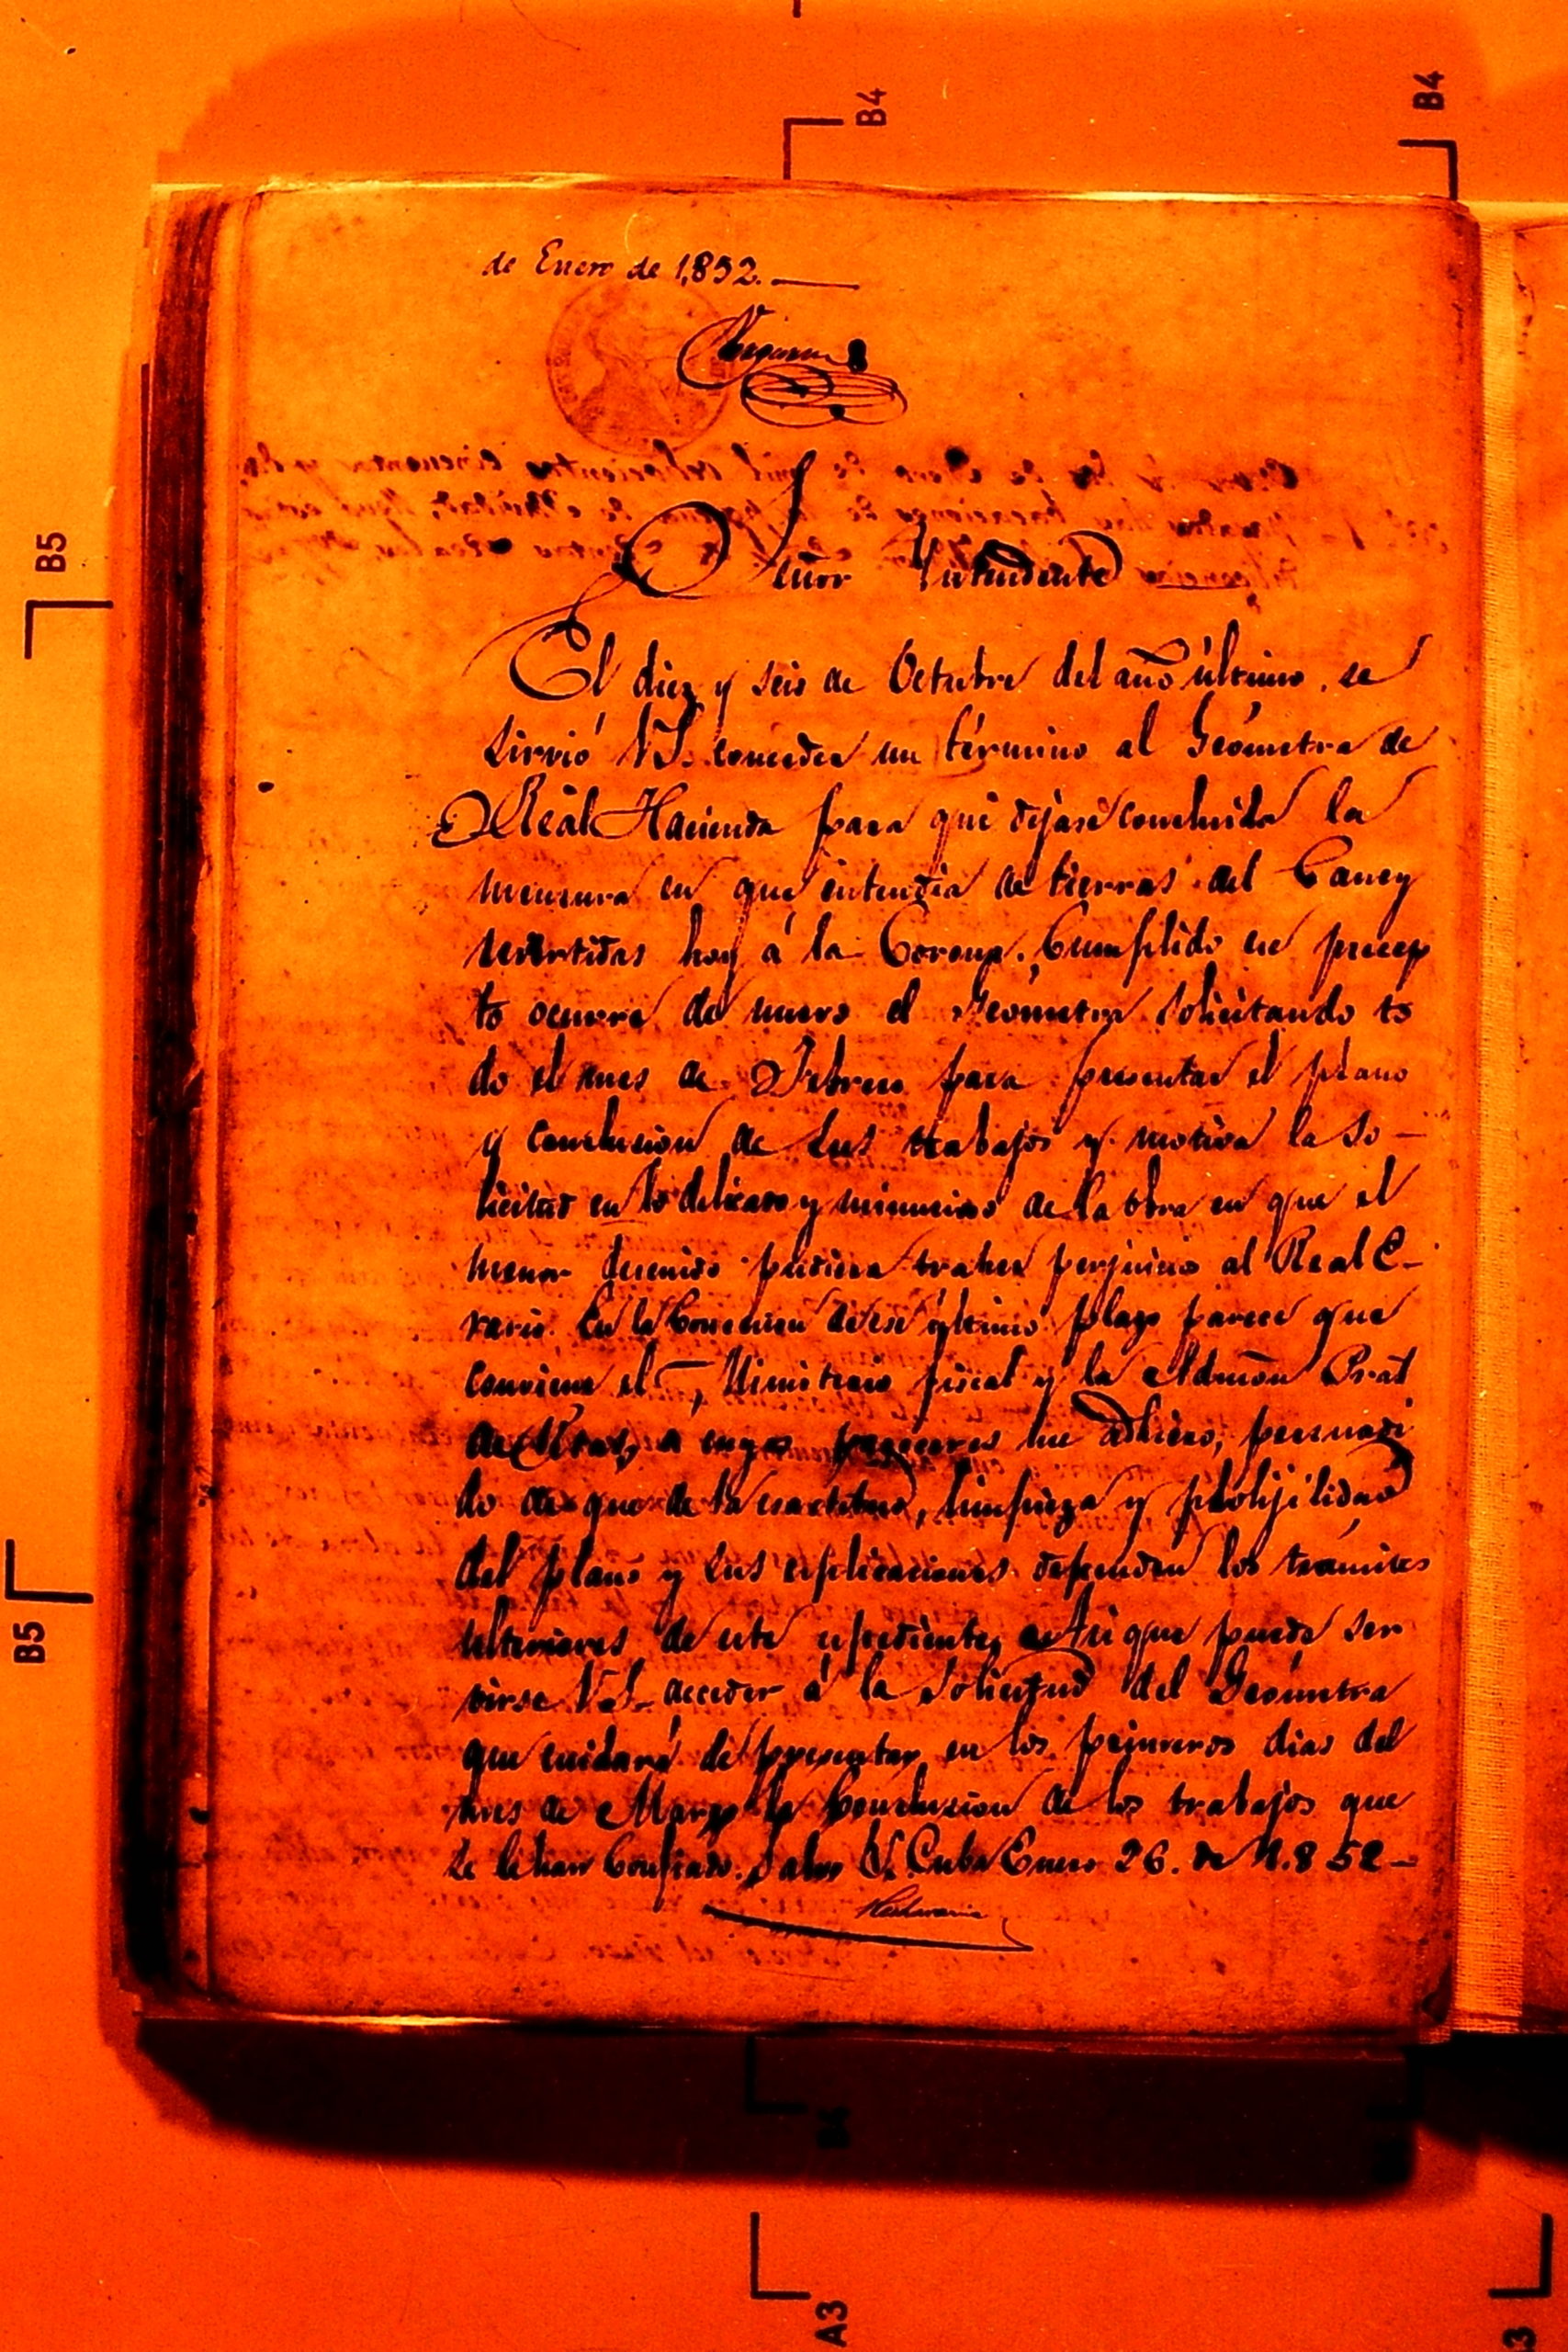 B4
B4
de Enero de 1,852.
Señor Intendente
B5
El diez y seis de Octubre del año último, se
sirvió V.S. conceder un término al Geómetra de
Real Hacienda para que dejase concluida la
mensura en que entendia de tierras del Caney
revertidas hoy á la Corona. Cumplido ese precep
to ocurre de nuevo el Geómetra solicitando to
do el mes de Febrero para presentar el plano
y conclusion de sus trabajos y motiva la so-
licitud en lo delicado y minucioso de la obra en que el
menor descuido pudiera traher perjuicio al Real E-
rario. En la Concesion de ese último plazo parece que
conviene el Ministerio fiscal y la Admōn Gral
de Rentas, á cuyos pareceres me adhiero, persuadi
do de que de la esactitud, limpieza y prolijilidad
del plano y sus esplicaciones dependen los trámites
ulteriores de este espediente. Asi que puede ser
virse V.S. acceder á la solicitud del Geómetra
que cuidará de presentar en los primeros dias del
mes de Marzo la Conclusion de los trabajos que
se le han Confiado. Salvo Cuba Enero 26. de 1.852-
B5
B4
A3